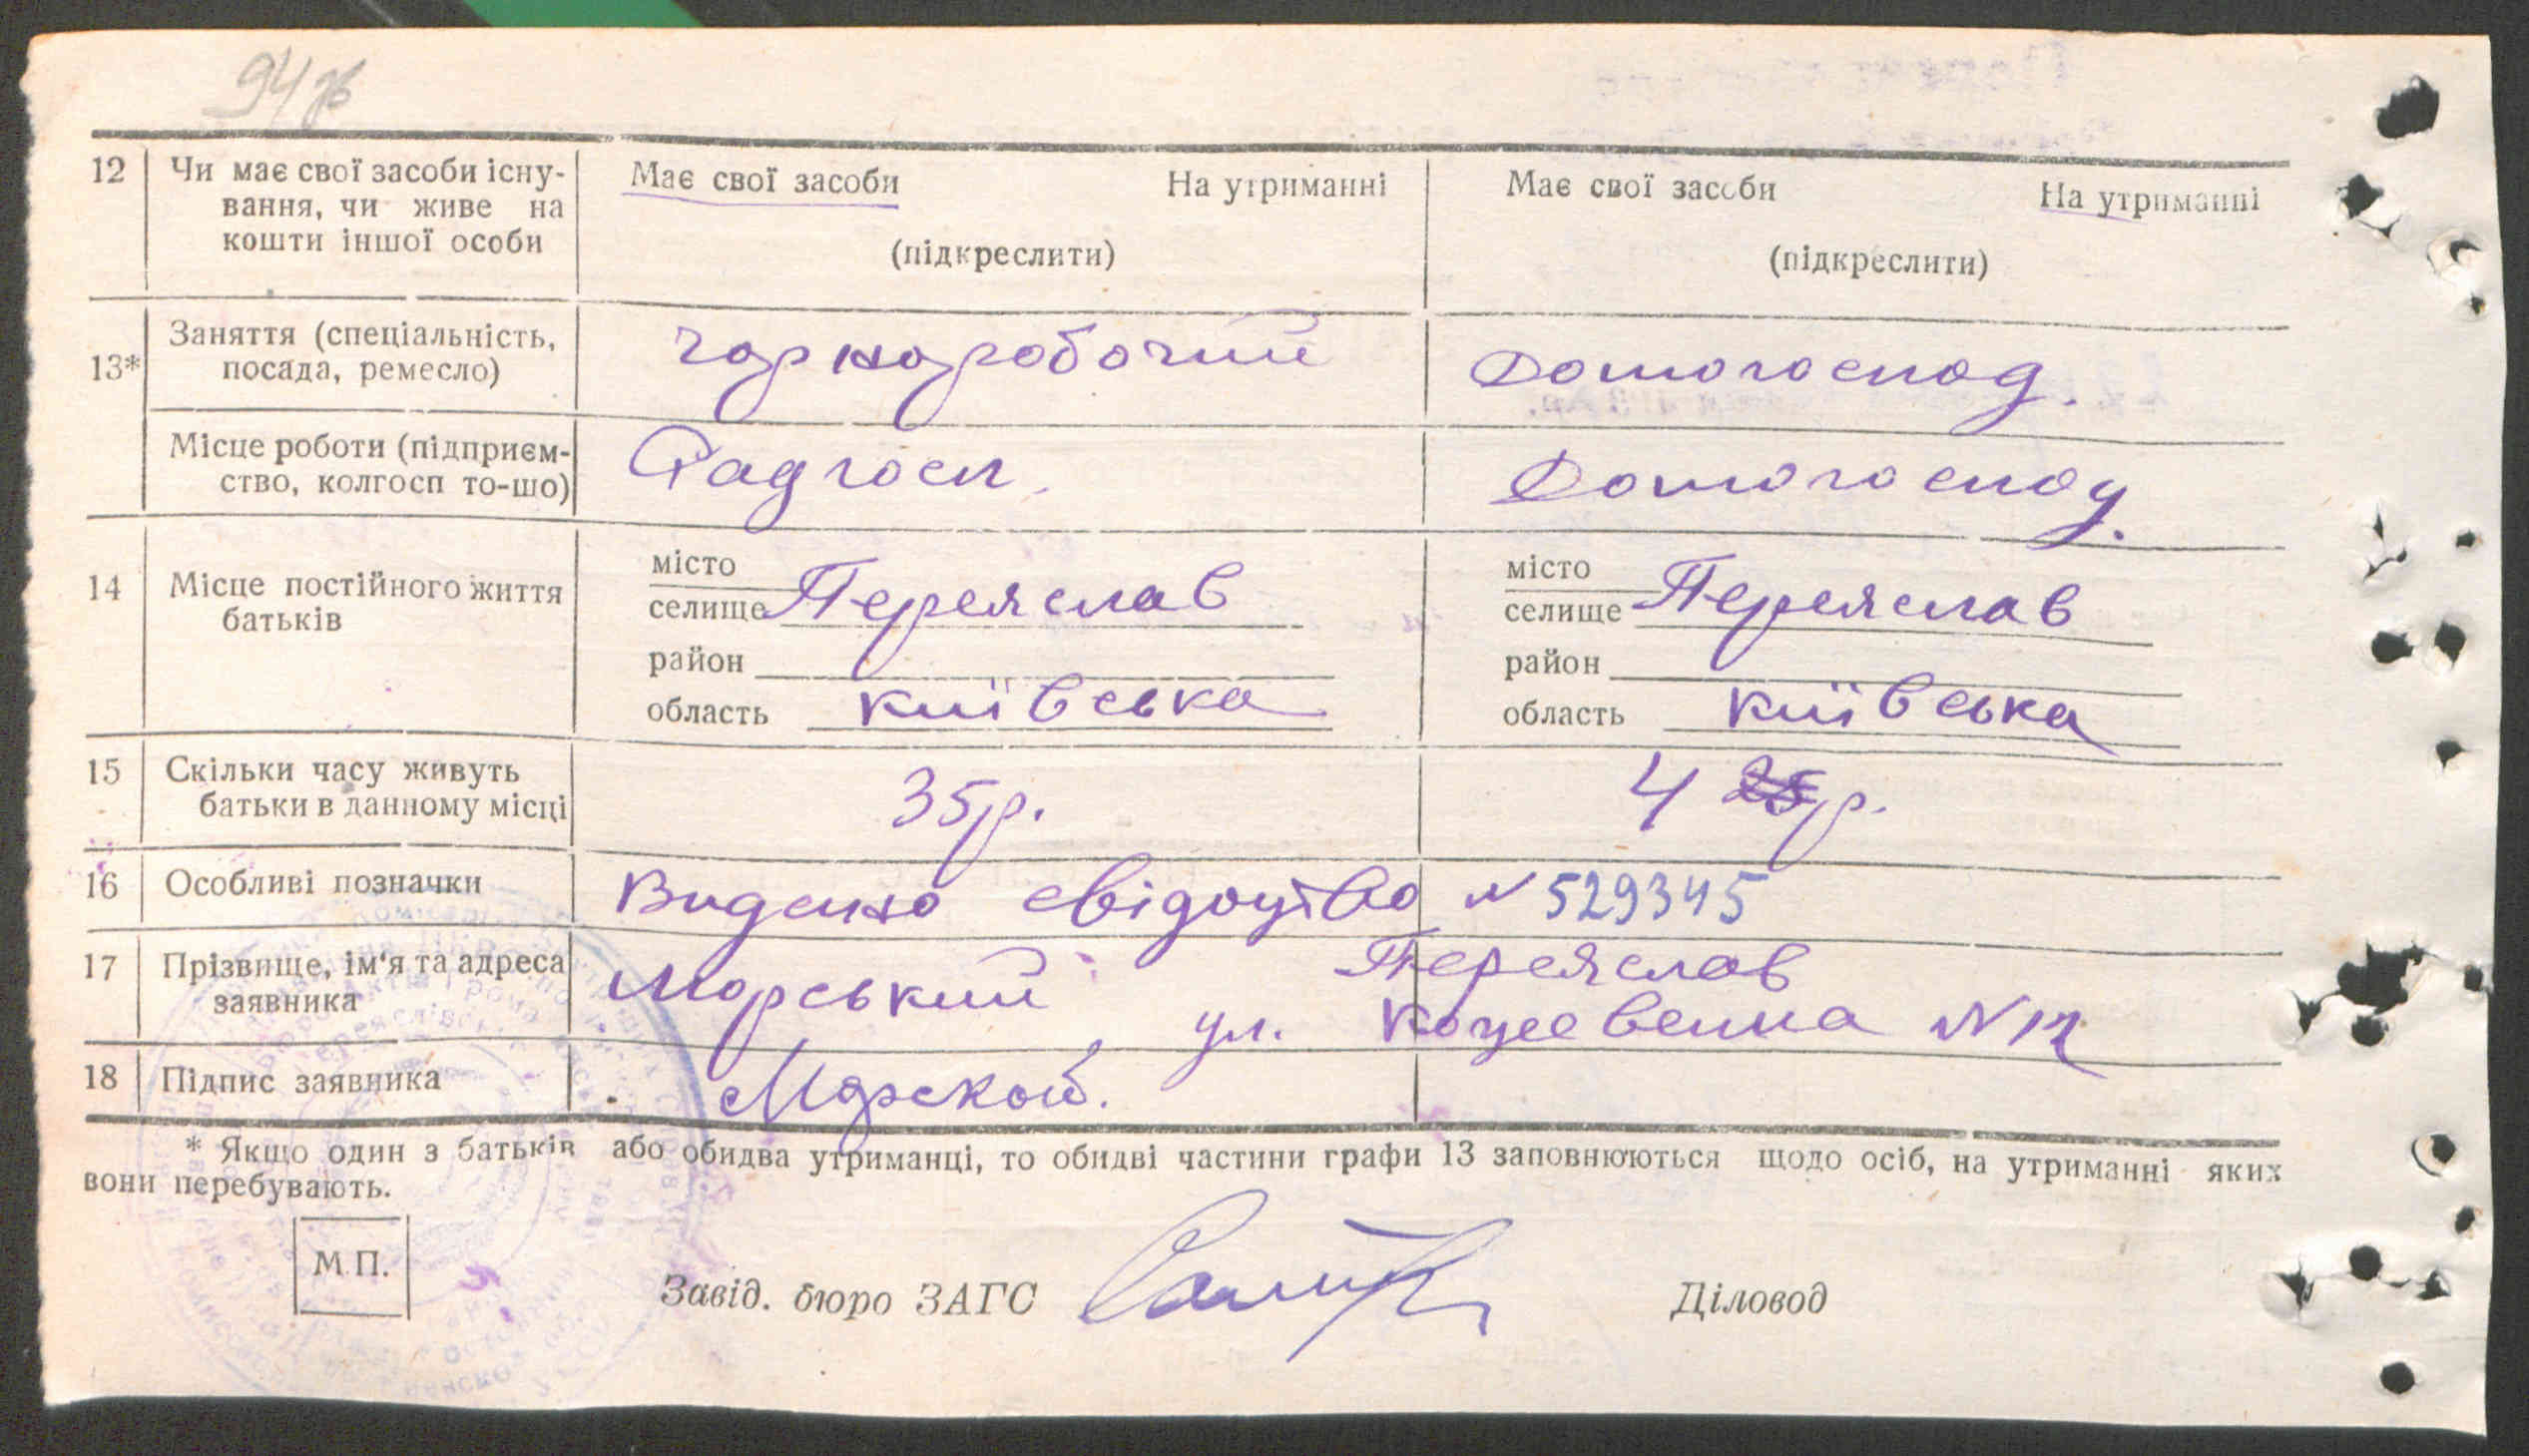 94 зв
12 Чи має свої засоби існу-
вання, чи живе на
кошти іншої особи
Має свої засоби На утриманні
(підкреслити)
Має свої засоби На утриманні
(підкреслити)
13* Заняття (спеціальність,
посада, ремесло)
чорноробочий
Домогоспод.
Місце роботи (підприєм-
ство, колгосп то-що)
Радгосп.
Домогоспод.
14 Місце постійного життя
батьків
місто
селище Переяслав
район
область київська
місто
селище Переяслав
район
область київська
15 Скільки часу живуть
батьки в данному місці
35 р.
4 р.
16 Особливі позначки
Видано свідоцтво N 529345
17 Прізвище, ім'я та адреса
заявника
Морський Переяслав
ул. N 12
18 Підпис заявника
Морской.
* Якщо один з батьків або обидва утриманці, то обидві частини графи 13 заповнюються щодо осіб, на утриманні яких
вони перебувають.
М.П.
Завід. бюро ЗАГС
Діловод